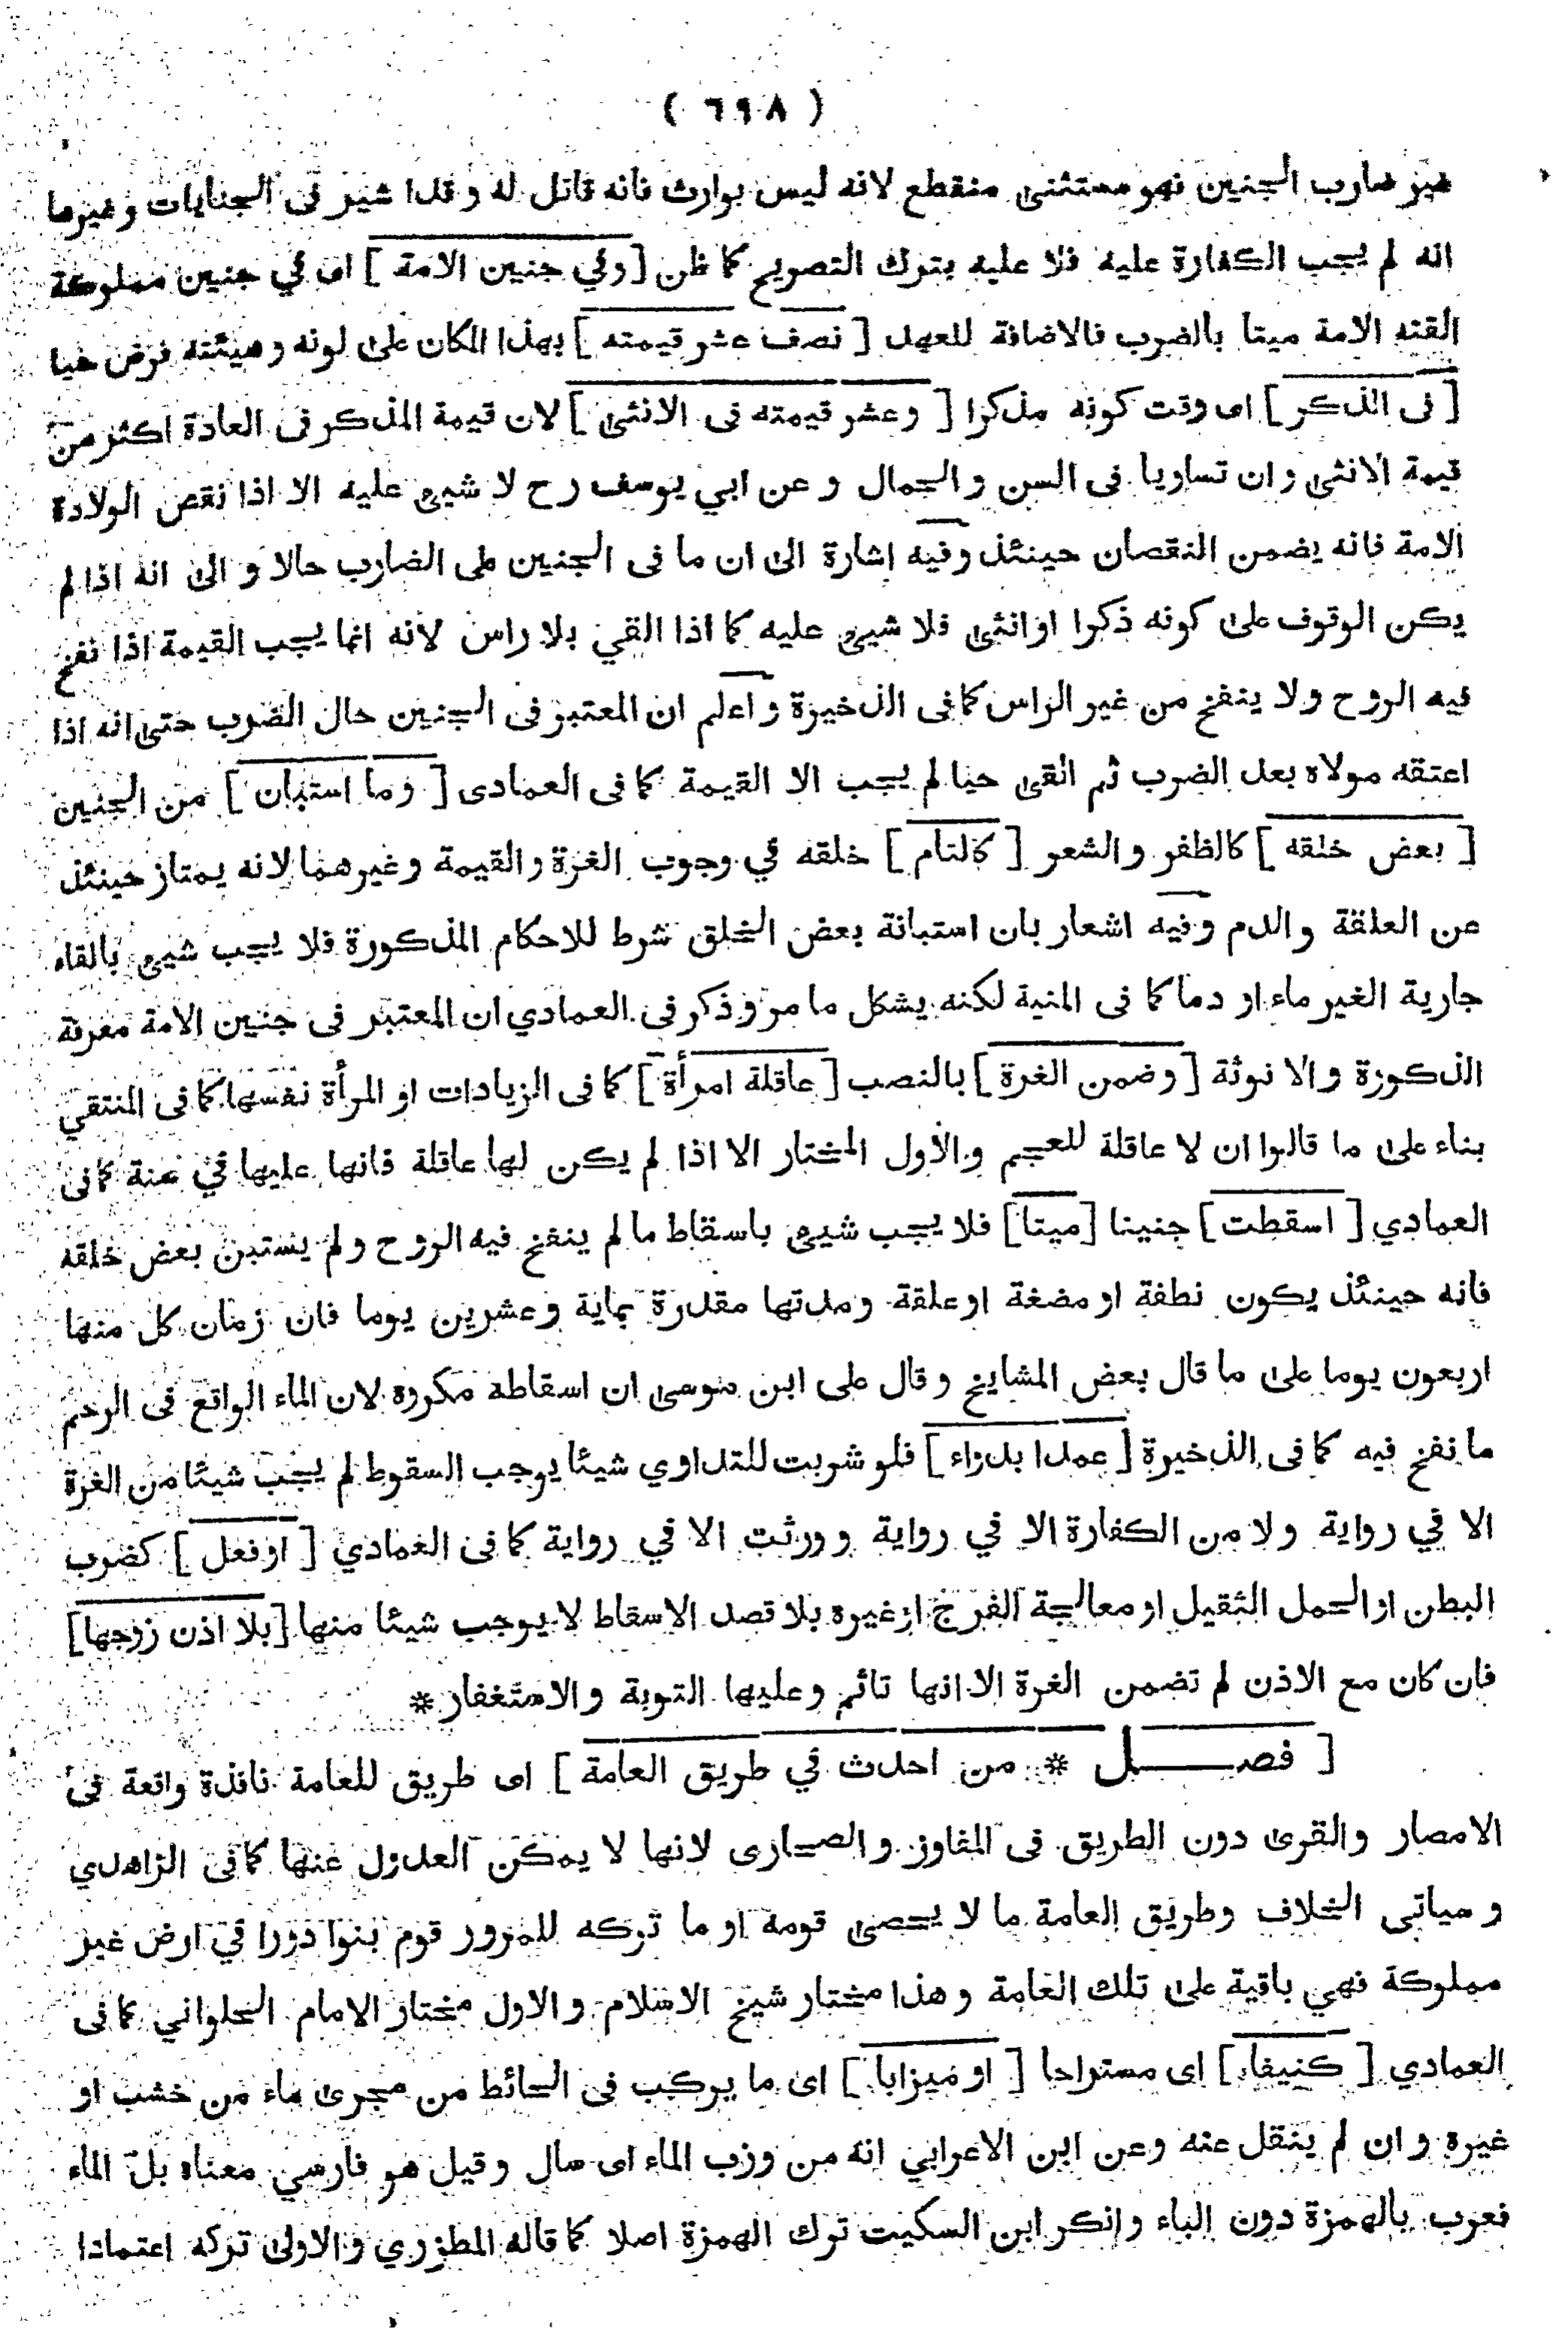 ( ٦٩٨ )
غير ضارب الجنين فهو مستثنى منقطع لانه ليس بوارث فانه قاتل له و قد اشير فى الجنايات وغيرها
انه لم يجب الكفارة عليه فلا عليه بترك التصريح كما ظن [ وفي جنين الامة ] اى في جنين مملوكة
القنه الامة ميتا بالضرب فالاضافة للعهد [ نصف عشر قيمته ] بهذا المكان على لونه وهيئته فرض حيا
[ فى الذكر ] اى وقت كونه مذكرا [ وعشر قيمته فى الانثى ] لان قيمة المذكر فى العادة اكثر من
قيمة الانثى و ان تساويا فى السن و الجمال و عن ابي يوسف رح لا شيئ عليه الا اذا نقص الولادة
الامة فانه يضمن النقصان حينئذ وفيه اشارة الى ان ما فى الجنين على الضارب حالا و الى انه اذا لم
يكن الوقوف على كونه ذكرا او انثى فلا شيئ عليه كما اذا القي بلا راس لانه انما يجب القيمة اذا نفخ
فيه الروح ولا ينفخ من غير الراس كما فى الذخيرة و اعلم ان المعتبر فى الجنين حال الضرب حتى انه اذا
اعتقه مولاه بعد الضرب ثم القى حيا لم يجب الا القيمة كما فى العمادى [ وما استبان ] من الجنين
[ بعض خلقه ] كالظفر و الشعر [ كالتام ] خلقه في وجوب الغرة و القيمة و غيرهما لانه يمتاز حينئذ
عن العلقة و الدم وفيه اشعار بان استبانة بعض الخلق شرط للاحكام المذكورة فلا يجب شيئ بالقاء
جارية الغير ماء او دما كما فى المنية لكنه يشكل ما مر و ذكر فى العمادي ان المعتبر فى جنين الامة معرفة
الذكورة و الا نوثة [ وضمن الغرة ] بالنصب [ عاقلة امرأة ] كما فى الزيادات او المرأة نفسها كما فى المنتقي
بناء على ما قالوا ان لا عاقلة للعجم و الاول المختار الا اذا لم يكن لها عاقلة فانها عليها في سنة كما فى
العمادي [ اسقطت ] جنينا [ ميتا ] فلا يجب شيئ باسقاط ما لم ينفخ فيه الروح و لم يستبن بعض خلقه
فانه حينئذ يكون نطفة او مضغة او علقة ومدتها مقدرة بماية وعشرين يوما فان زمان كل منها
اربعون يوما على ما قال بعض المشايخ و قال على ابن موسى ان اسقاطه مكروه لان الماء الواقع فى الرحم
ما نفخ فيه كما فى الذخيرة [ عمدا بدواء ] فلو شربت للتداوي شيئا يوجب السقوط لم يجب شيئا من الغرة
الا في رواية ولا من الكفارة الا في رواية و ورثت الا في رواية كما فى العمادي [ او فعل ] كضرب
البطن او الحمل الثقيل او معالجة الفرج او غيره بلا قصد الاسقاط لا يوجب شيئا منها [ بلا اذن زوجها ]
فان كان مع الاذن لم تضمن الغرة الا انها تاثم وعليها التوبة و الاستغفار *
[ فصــــل * من احدث في طريق العامة ] اى طريق للعامة نافذة واقعة فى
الامصار والقرى دون الطريق فى المفاوز و الصحارى لانها لا يمكن العدول عنها كما فى الزاهدي
و سياتى الخلاف وطريق العامة ما لا يحصى قومه او ما تركه للمرور قوم بنوا دورا في ارض غير
مملوكة فهي باقية على تلك العامة و هذا مختار شيخ الاسلام و الاول مختار الامام الحلواني كما فى
العمادي [ كنيفا ] اى مستراحا [ او ميزابا ] اى ما يركب فى الحائط من مجرى ماء من خشب او
غيره و ان لم ينقل عنه وعن ابن الاعرابي انه من وزب الماء اى سال و قيل هو فارسي معناه بل الماء
فعرب بالهمزة دون الياء و انكر ابن السكيت ترك الهمزة اصلا كما قاله المطرزي و الاولى تركه اعتمادا